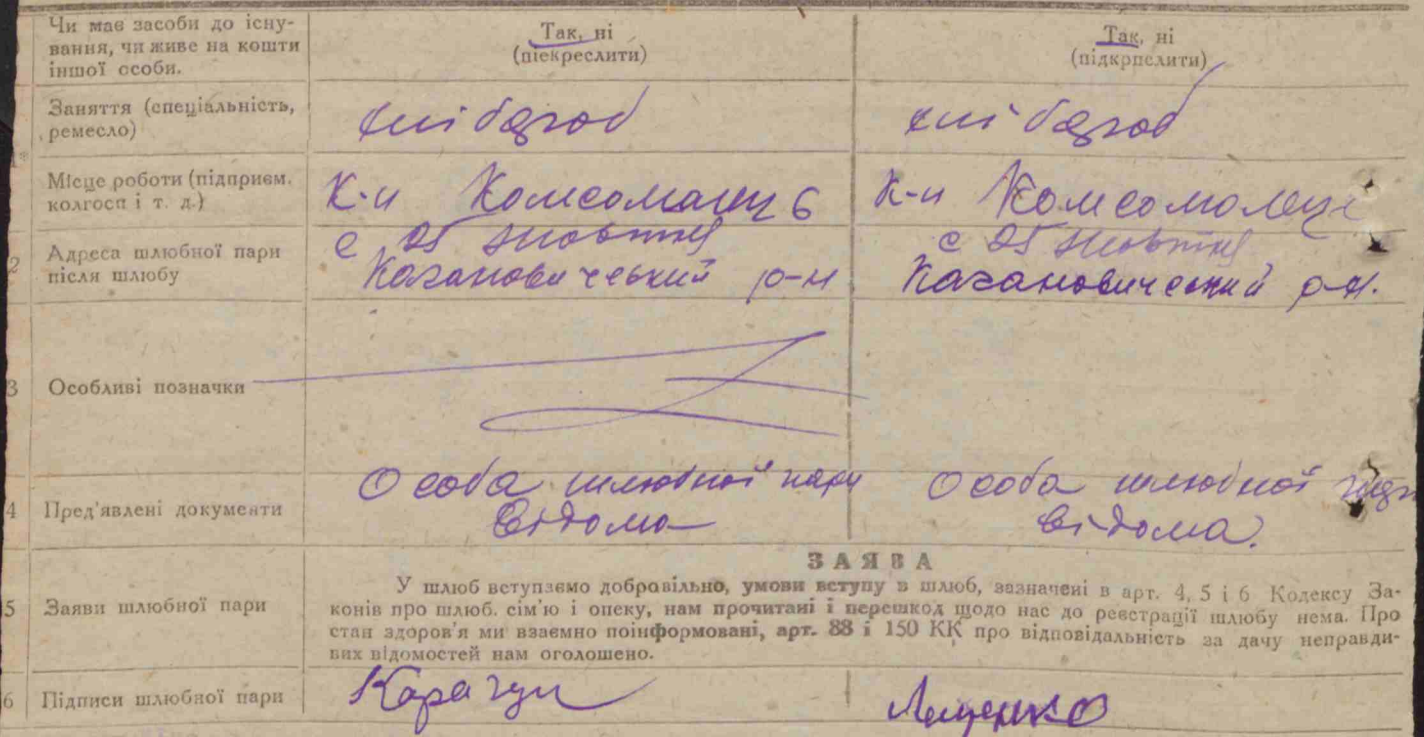 Чи має засоби до існу-
вання, чи живе на кошти
іншої особи.
Так, ні
(піекреслити)
Так, ні
(підкрпслити)
Заняття (спеціальність,
ремесло)
хлібороб
хлібороб
Місце роботи (підприєм.
колгосп і т. д.)
К-п Комсомолець
К-п Комсомолець
2 Адреса шлюбної пари
після шлюбу
с 25 Жовтня
Кагановичеський р-н
с 25 Жовтня
Кагановичеський р-н.
3 Особливі позначки
4 Пред'явлені документи
Особа шлюбної пари
відома
Особа шлюбної пари
відома.
ЗАЯВА
5 Заяви шлюбної пари
У шлюб вступаємо добровільно, умови вступу в шлюб, зазначені в арт. 4, 5 і 6 Кодексу За-
конів про шлюб. сім'ю і опеку, нам прочитані і перешкод щодо нас до реєстрації шлюбу нема. Про
стан здоров'я ми взаємно поінформовані, арт. 88 і 150 КК про відповідальність за дачу неправди-
вих відомостей нам оголошено.
6 Підписи шлюбної пари
Карачун
Лященко